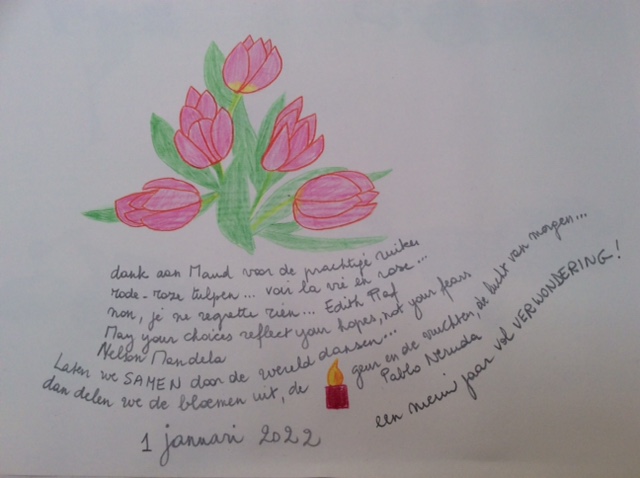 dank aan Maud voor de prachtige ruiker
rode-roze tulpen... voir la vie en rose...
non, je ne regrette rien... Edith Piaf
May your choices reflect your hopes, not your fears
Nelson Mandela
Laten we SAMEN door de wereld dansen...
dan delen we de bloemen uit, de geur en de vruchten, de lucht van morgen...
Pablo Neruda
een nieuw jaar vol VERWONDERING!
1 januari 2022